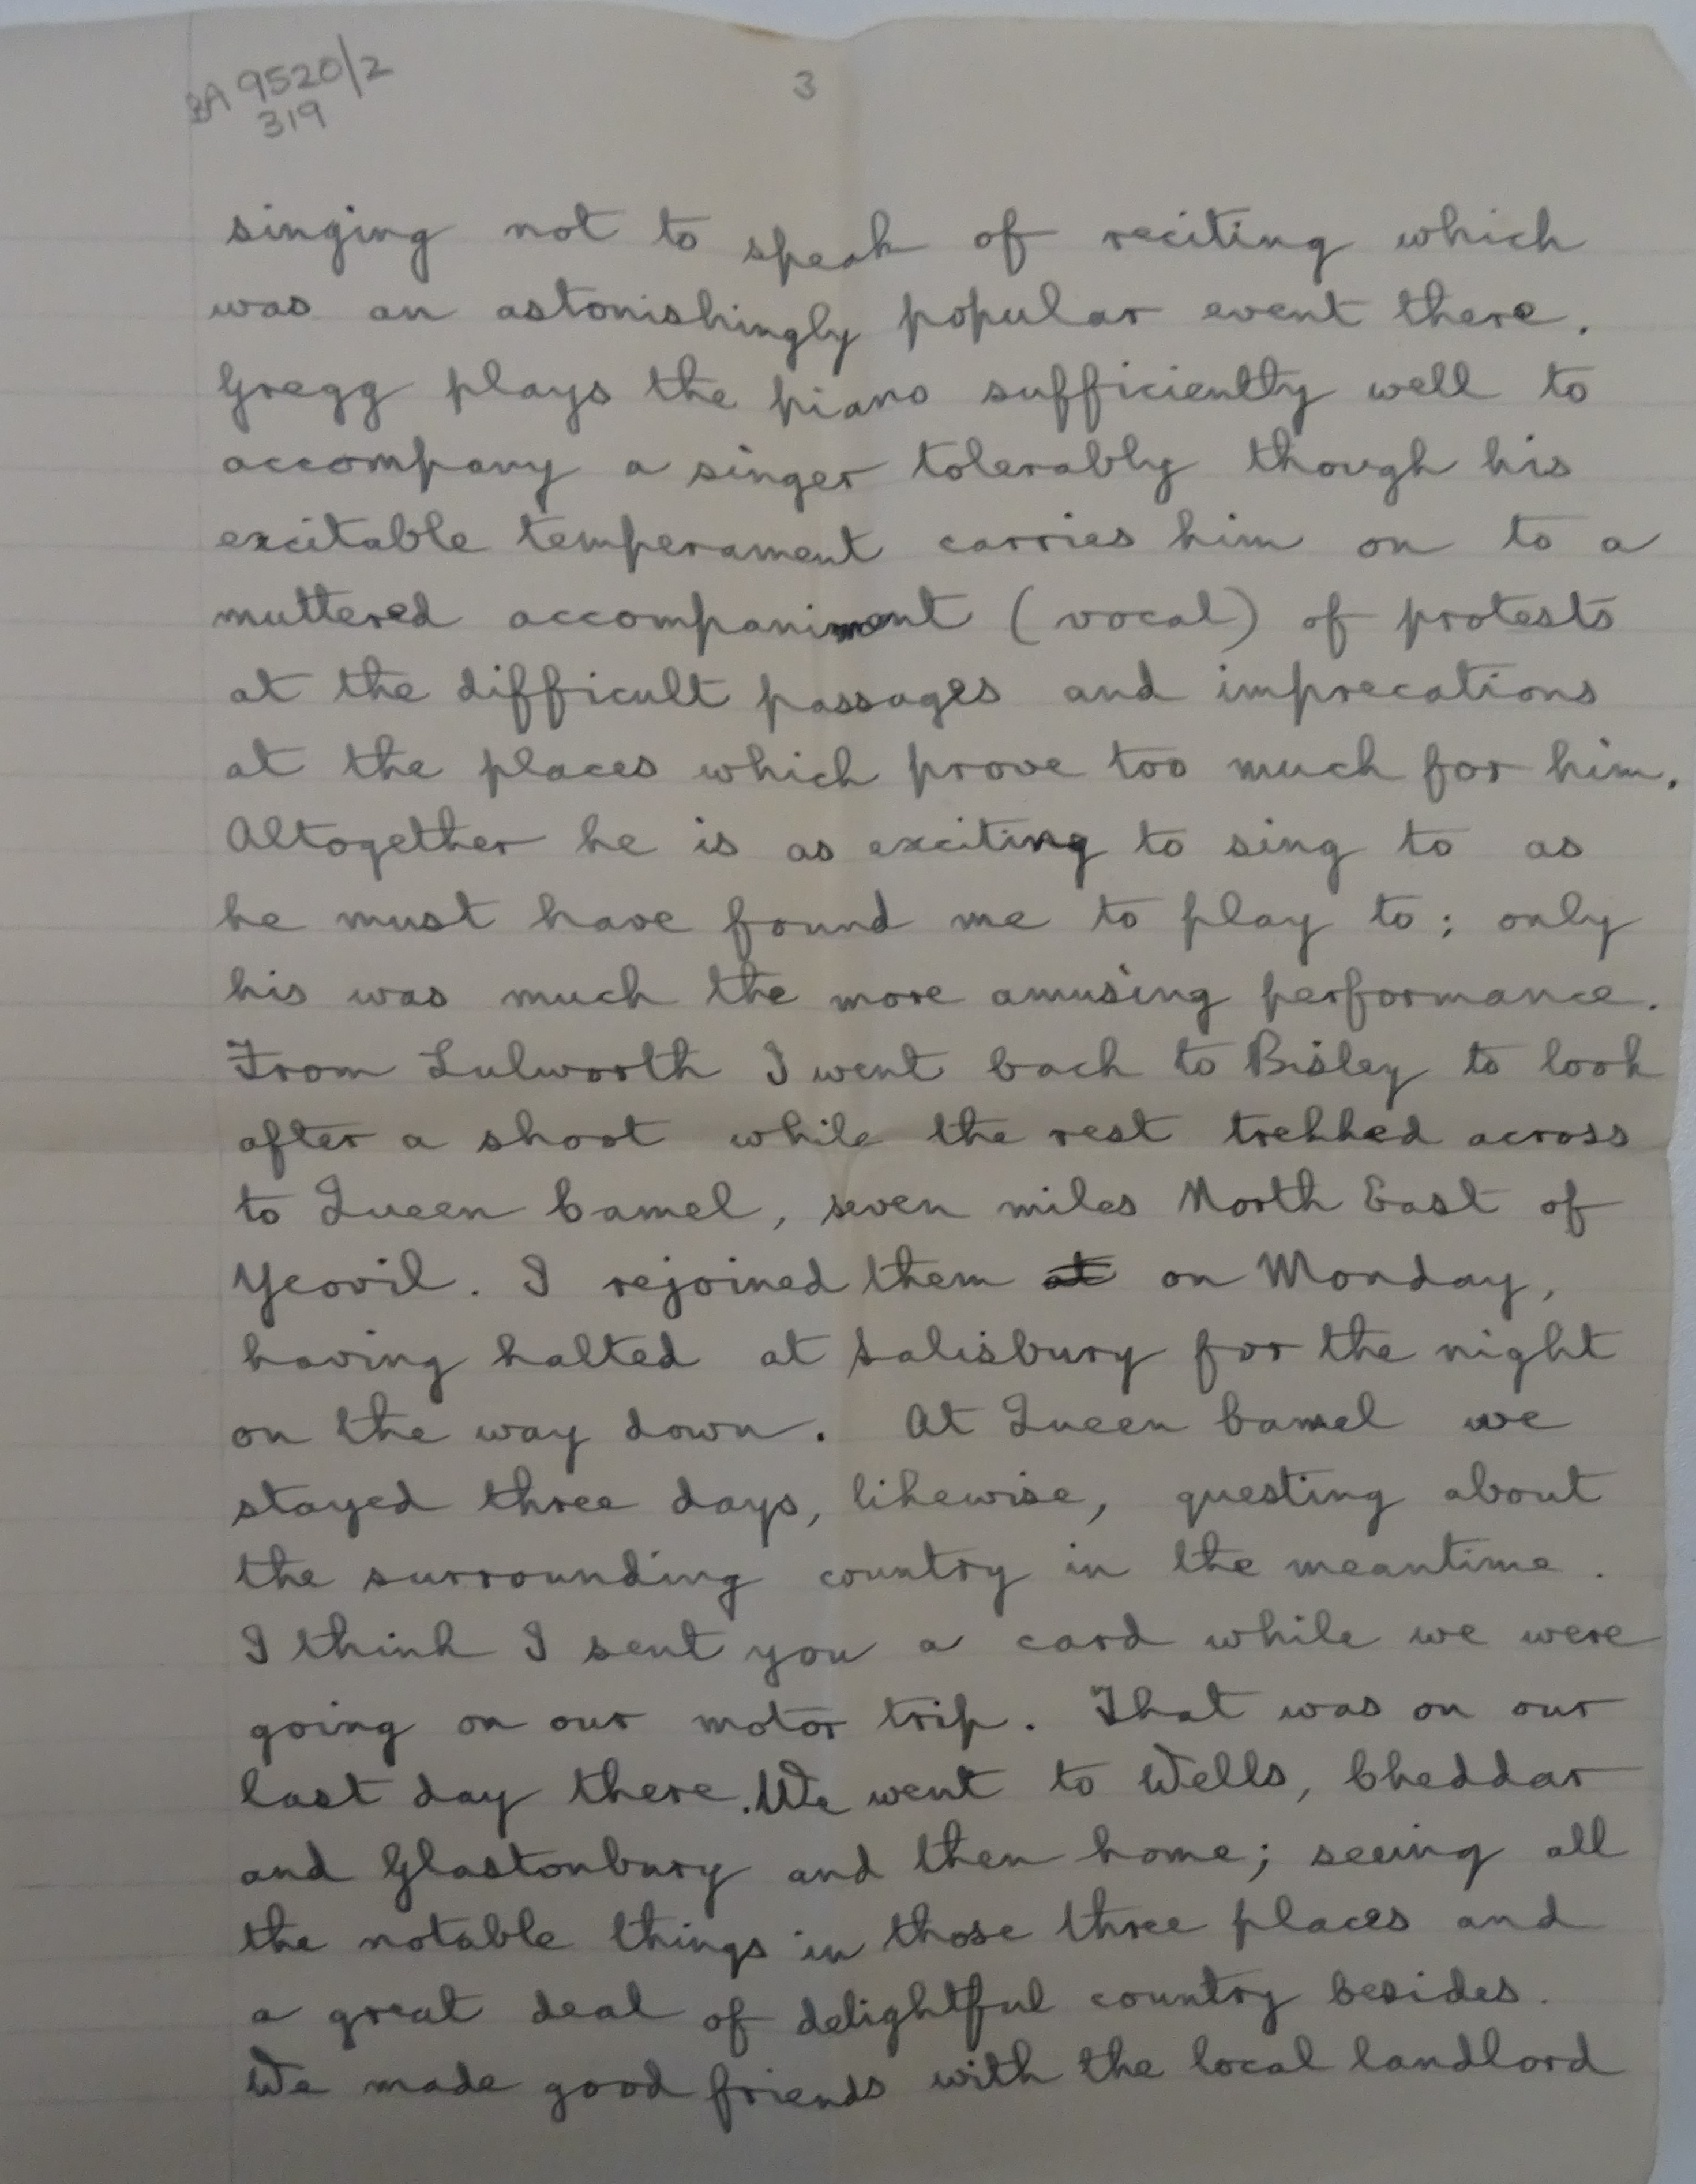 BA 9520/2
319
3
singing not to speak of reciting which
was an astonishingly popular event there.
Gregg plays the piano sufficiently well to
accompany a singer tolerably though his
excitable temperament carries him on to a
muttered accompaniment (vocal) of protests
at the difficult passages and imprecations
at the places which prove too much for him.
Altogether he is as exciting to sing to as
he must have found me to play to; only
his was much the more amusing performance.
From Lulworth I went back to Bisley to look
after a shoot while the rest trekked across
to Queen Camel, seven miles North East of
Yeovil. I rejoined them at on Monday,
having halted at Salisbury for the night
on the way down. At Queen Camel we
stayed three days, likewise, questing about
the surrounding country in the meantime.
I think I sent you a card while we were
going on our motor trip. That was on our
last day there. We went to Wells, Cheddar
and Glastonbury and then home; seeing all
the notable things in those three places and
a great deal of delightful country besides.
We made good friends with the local landlord